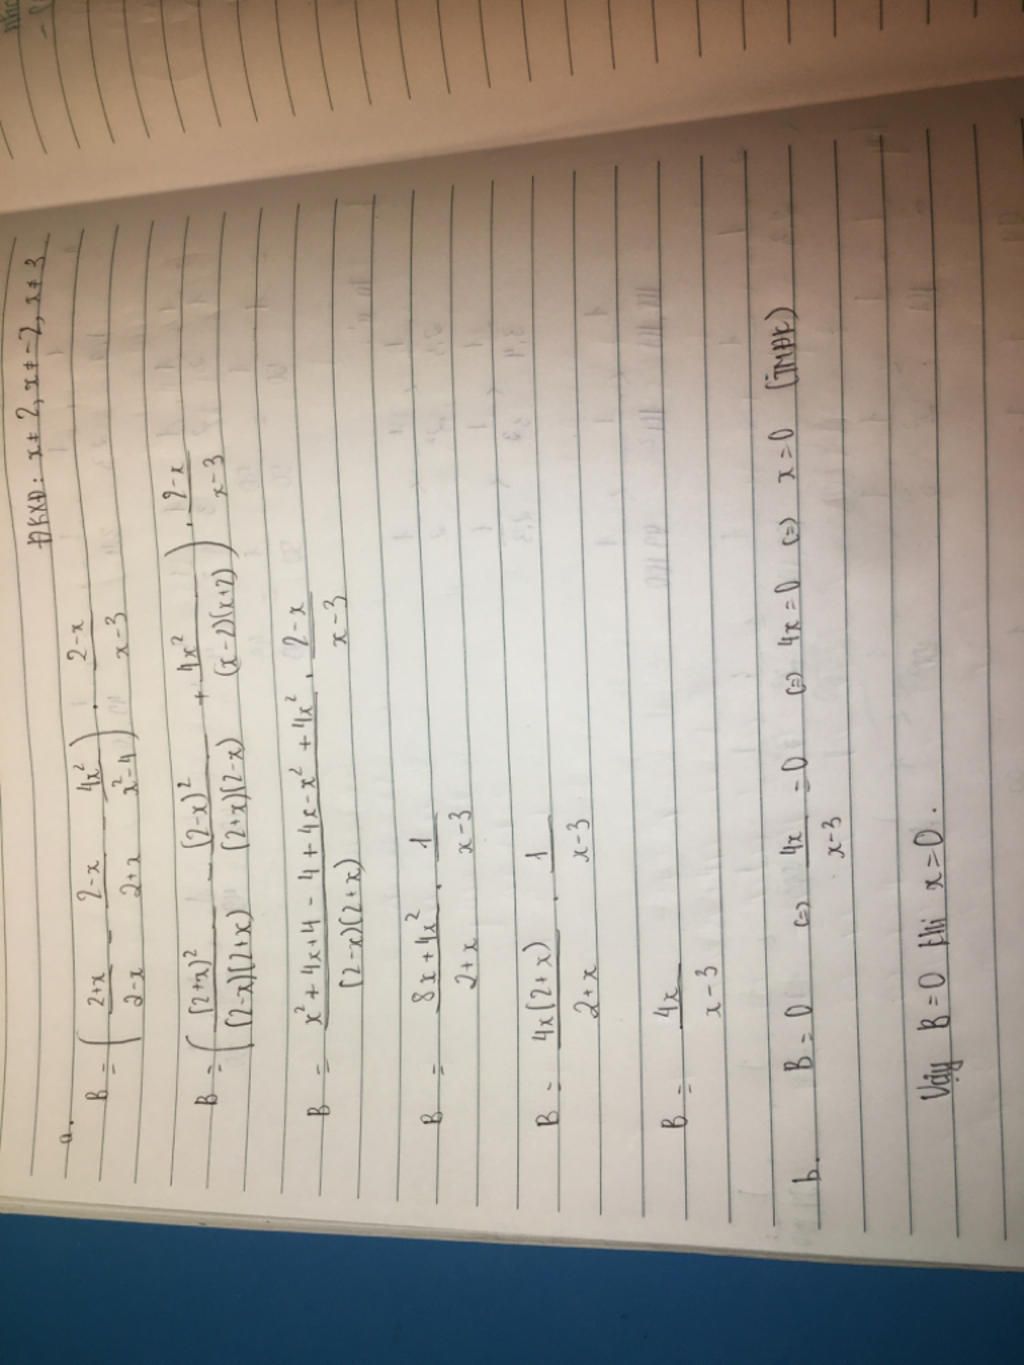 a. ĐKXĐ: x ≠ 2, x ≠ -2, x ≠ 3
B = ( (2+x)/(2-x) - (2-x)/(2+x) - 4x²/(x²-4) ) . (2-x)/(x-3)
B = ( (2+x)²/((2-x)(2+x)) - (2-x)²/((2+x)(2-x)) + 4x²/((x-2)(x+2)) ) . (2-x)/(x-3)
B = (x² + 4x + 4 - 4 + 4x - x² + 4x²)/((2-x)(2+x)) . (2-x)/(x-3)
B = (8x + 4x²)/(2+x) . 1/(x-3)
B = 4x(2+x)/(2+x) . 1/(x-3)
B = 4x/(x-3)
b. B = 0 (=) 4x/(x-3) = 0 (=) 4x = 0 (=) x = 0 (TMĐK)
Vậy B = 0 khi x = 0.